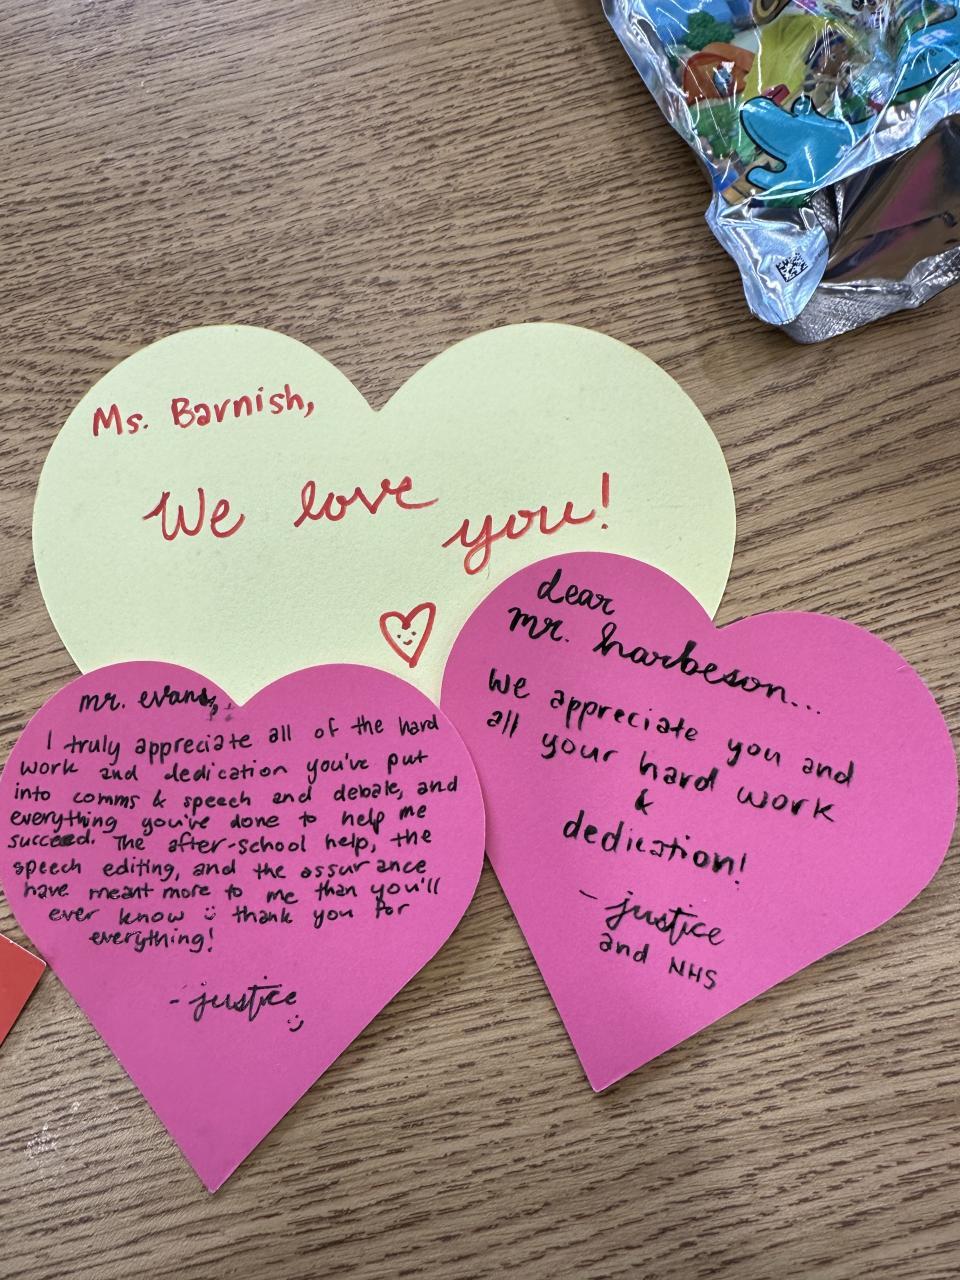 Ms. Barnish,
We love
you!
dear
mr. harbeson...
we appreciate you and
all your hard work
&
dedication!
- justice
and NHS
mr. evans,
I truly appreciate all of the hard
work and dedication you've put
into comms & speech and debate, and
everything you've done to help me
succeed. The after-school help, the
speech editing, and the assurance
have meant more to me than you'll
ever know thank you for
everything!
- justice